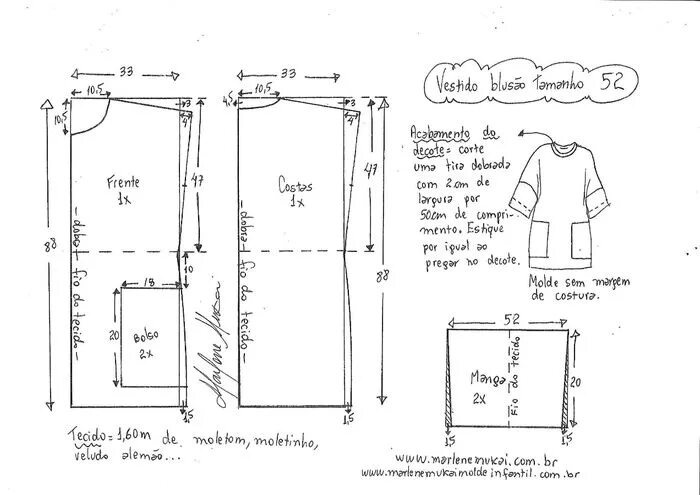 Vestido blusão tamanho 52
33
10,5
10,5
3
4
88
47
Frente
1x
- dobra - fio do tecido -
10
18
20
Bolso
2x
1,5
Marlene Mukai
33
10,5
4,5
3
4
47
88
Costas
1x
- dobra - fio do tecido -
1,5
Acabamento do
decote = corte
uma tira dobrada
com 2 cm de
largura por
50cm de compri-
mento. Estique
por igual ao
pregar no decote.
Molde sem margem
de costura.
52
Manga
2x
Fio do tecido
20
1,5
1,5
Tecido = 1,60m de moletom, moletinho,
veludo alemão...
www.marlenemukai.com.br
www.marlenemukaimoldeinfantil.com.br